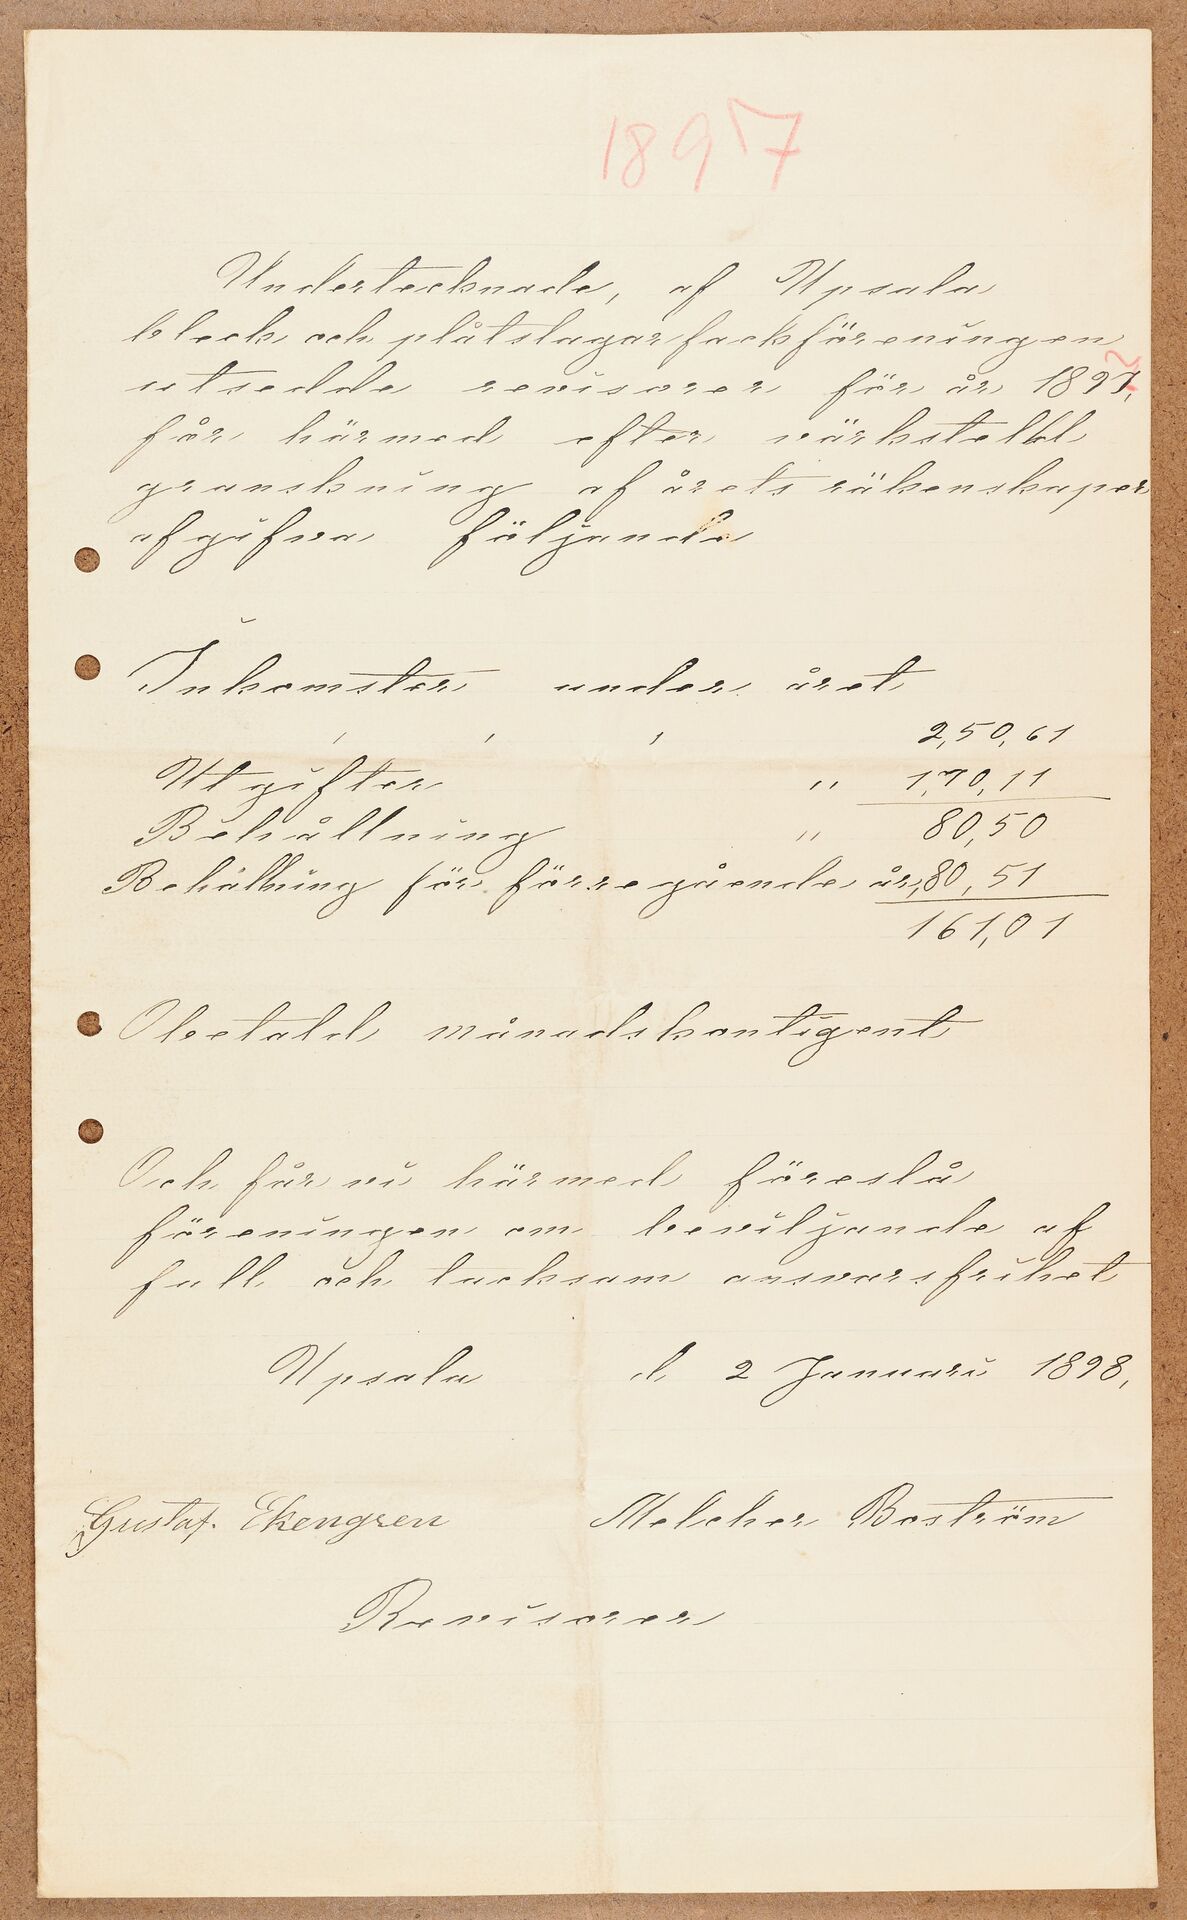 1897
Undertecknade, af Upsala
bleck och plåtslagarfackföreningen
utsedde revisorer för år 1897,
får härmed efter värkstelld
granskning af årets räkenskaper
afgifva följande
Inkomster under året
' ' ' 2,50,61
Utgifter " 1,70,11
Behållning " 80,50
Behållning för förregående år, 80,51
161,01
Obetald månadskontigent
Och får vi härmed föreslå
föreningen om beviljande af
full och tacksam ansvarsfrihet
Upsala d. 2 Januari 1898,
Gustaf. Ekengren Melcher Boström
Revisorer